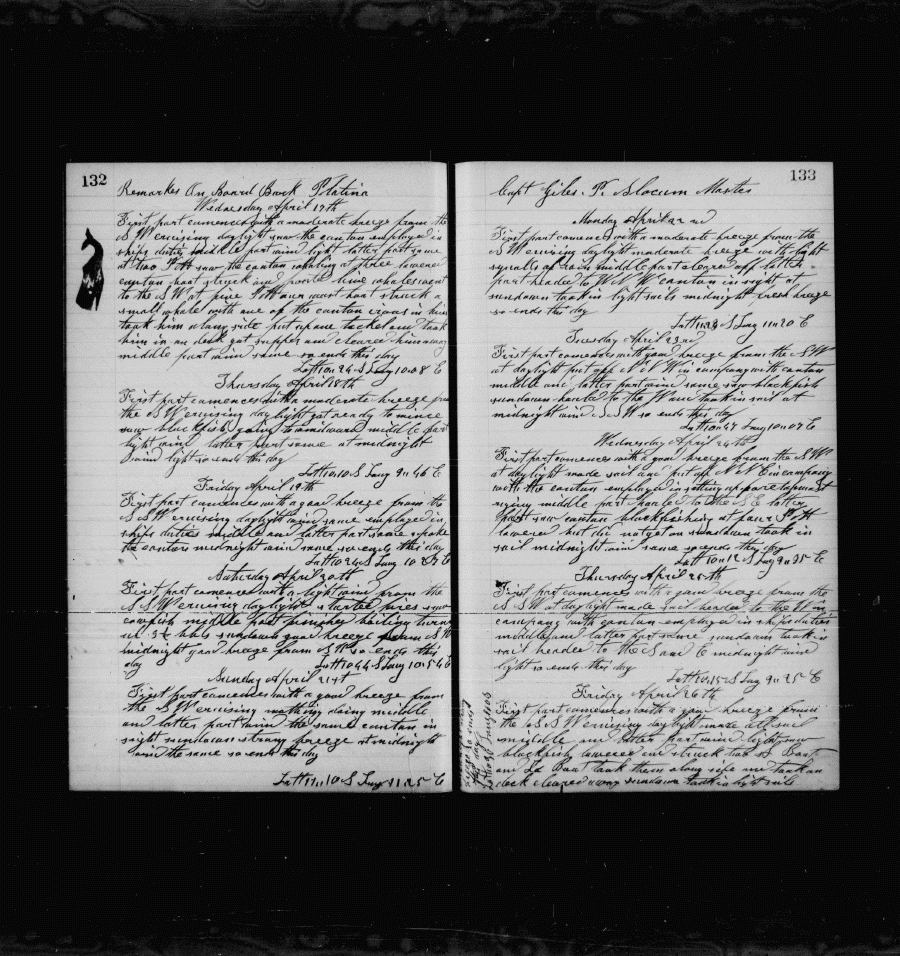 132
Remarkes On Board Bark Platina
Wednesday April 17th
First part comences with a moderate breeze from the
S W cruising daylight saw the canton employed in
ships duties middle part wind light latter part same
at two P M saw the canton whaling at three lowered
canton boat struck one whales went
to the S W at four P M our boat struck a
small whale with one of the canton
took him along side put upone teckel and took
him in on deck got supper and cleared him away
middle part wind same so ends this day
Latt 10 24 S Long 10 08 E
Thursday April 18th
First part comences with a moderate breeze from
the S W cruising daylight got ready to mince
saw blackfish going to windward middle part
light wind latter part same at midnight
wind light so ends this day
Latt 10 10 S Long 9 46 E
Friday April 19th
First part comences with a good breeze from the
S S W cruising daylight wind same employed in
ships duties middle and latter part same spoke
the canton midnight wind same so ends this day
Latt 10 24 S Long 10 27 E
Saturday April 20th
First part comences with a light wind from the
S S W cruising daylight started fires saw
cowfish middle part finished boiling turned
up bbls sundown good breeze from S W
midnight good breeze from S W so ends this
day
Latt 10 44 S Long 10 54 E
Sunday April 21st
First part comences with a good breeze from
the S W cruising nothing doing middle
and latter part wind the same canton in
sight sundown strong breeze at midnight
wind the same so ends this day
Latt 11 10 S Long 11 25 E
133
Capt Giles P. Slocum Master
Monday April 22nd
First part comences with a moderate breeze from the
S W cruising daylight moderate breeze with light
squalls of rain middle part cleared off latter
part headed to W N W canton in sight at
sundown took in light sails midnight fresh breeze
so ends this day
Latt 11 28 S Long 11 20 E
Tuesday April 23rd
First part comences with good breeze from the S W
at daylight put off N N W in company with canton
middle and latter part wind same saw blackfish
sundown hauled to the W and took in sail at
midnight wind S S W so ends this day
Latt 10 47 Long 10 07 E
Wednesday April 24th
First part comences with a good breeze from the S W
at daylight made sail and put off N N E in company
with the canton employed in setting up foretopmast
riging middle part headed to the S E latter
part saw canton blackfishing at four P M
lowered but did not get on sundown took in
sail midnight wind same so ends this day
Latt 10 12 S Long 9 35 E
Thursday April 25th
First part comences with a good breeze from the
S S W at daylight made sail headed to the W in
company with canton employed in ships duties
middle and latter part same sundown took in
sail headed to the S and E midnight wind
light so ends this day
Latt 10 15 S Long 9 25 E
Friday April 26th
First part comences with a good breeze from
the S S W cruising daylight made all sail
middle and latter part wind light saw
blackfish lowered and struck two S Boat
and La Boat took them along side and took on
deck cleared away sundown took in light sails